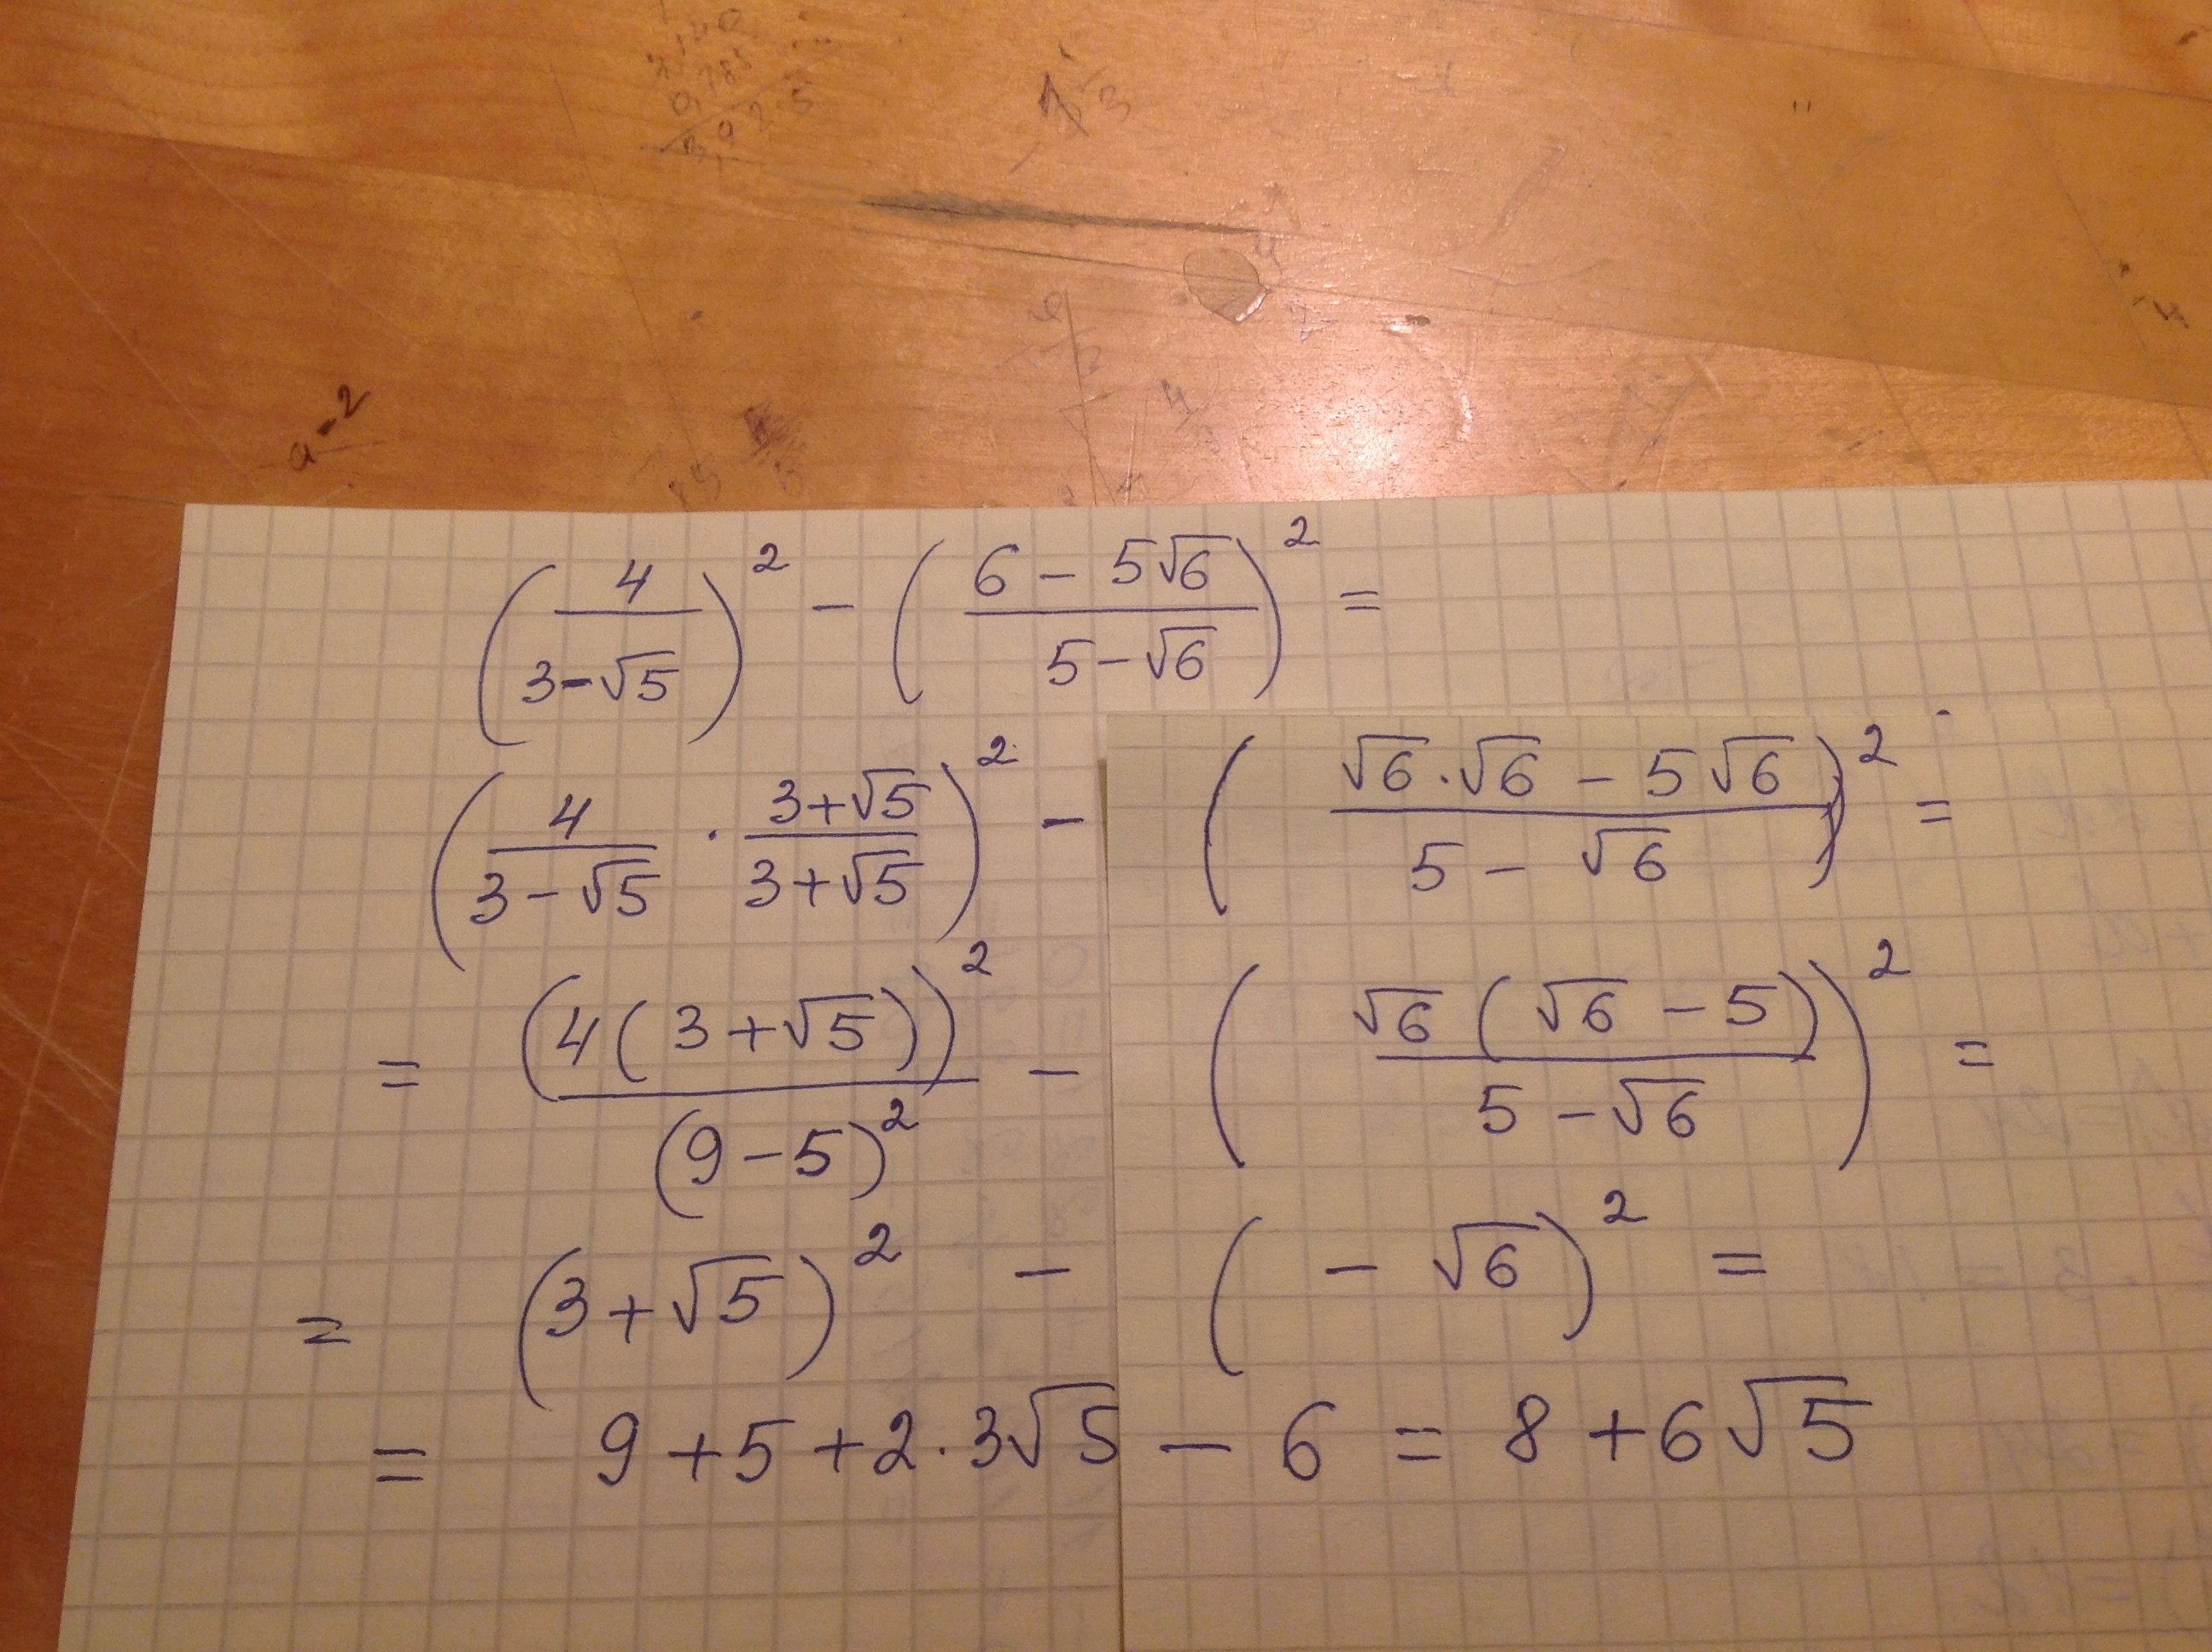 a-2
(4/(3-√5))² - ((6-5√6)/(5-√6))² =
(4/(3-√5) · (3+√5)/(3+√5))² - ((√6·√6-5√6)/(5-√6))² =
= (4(3+√5))²/(9-5)² - (√6(√6-5)/(5-√6))² =
= (3+√5)² - (-√6)² =
= 9+5+2·3√5 - 6 = 8+6√5